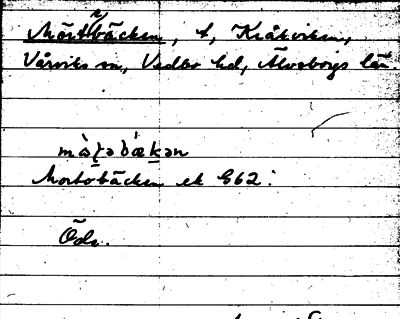 Mörtbäcken, t, Kråkviken,
Vårviks sn, Vedbo hd, Älvsborgs län
Mortobäcken ek G62:
Öde.